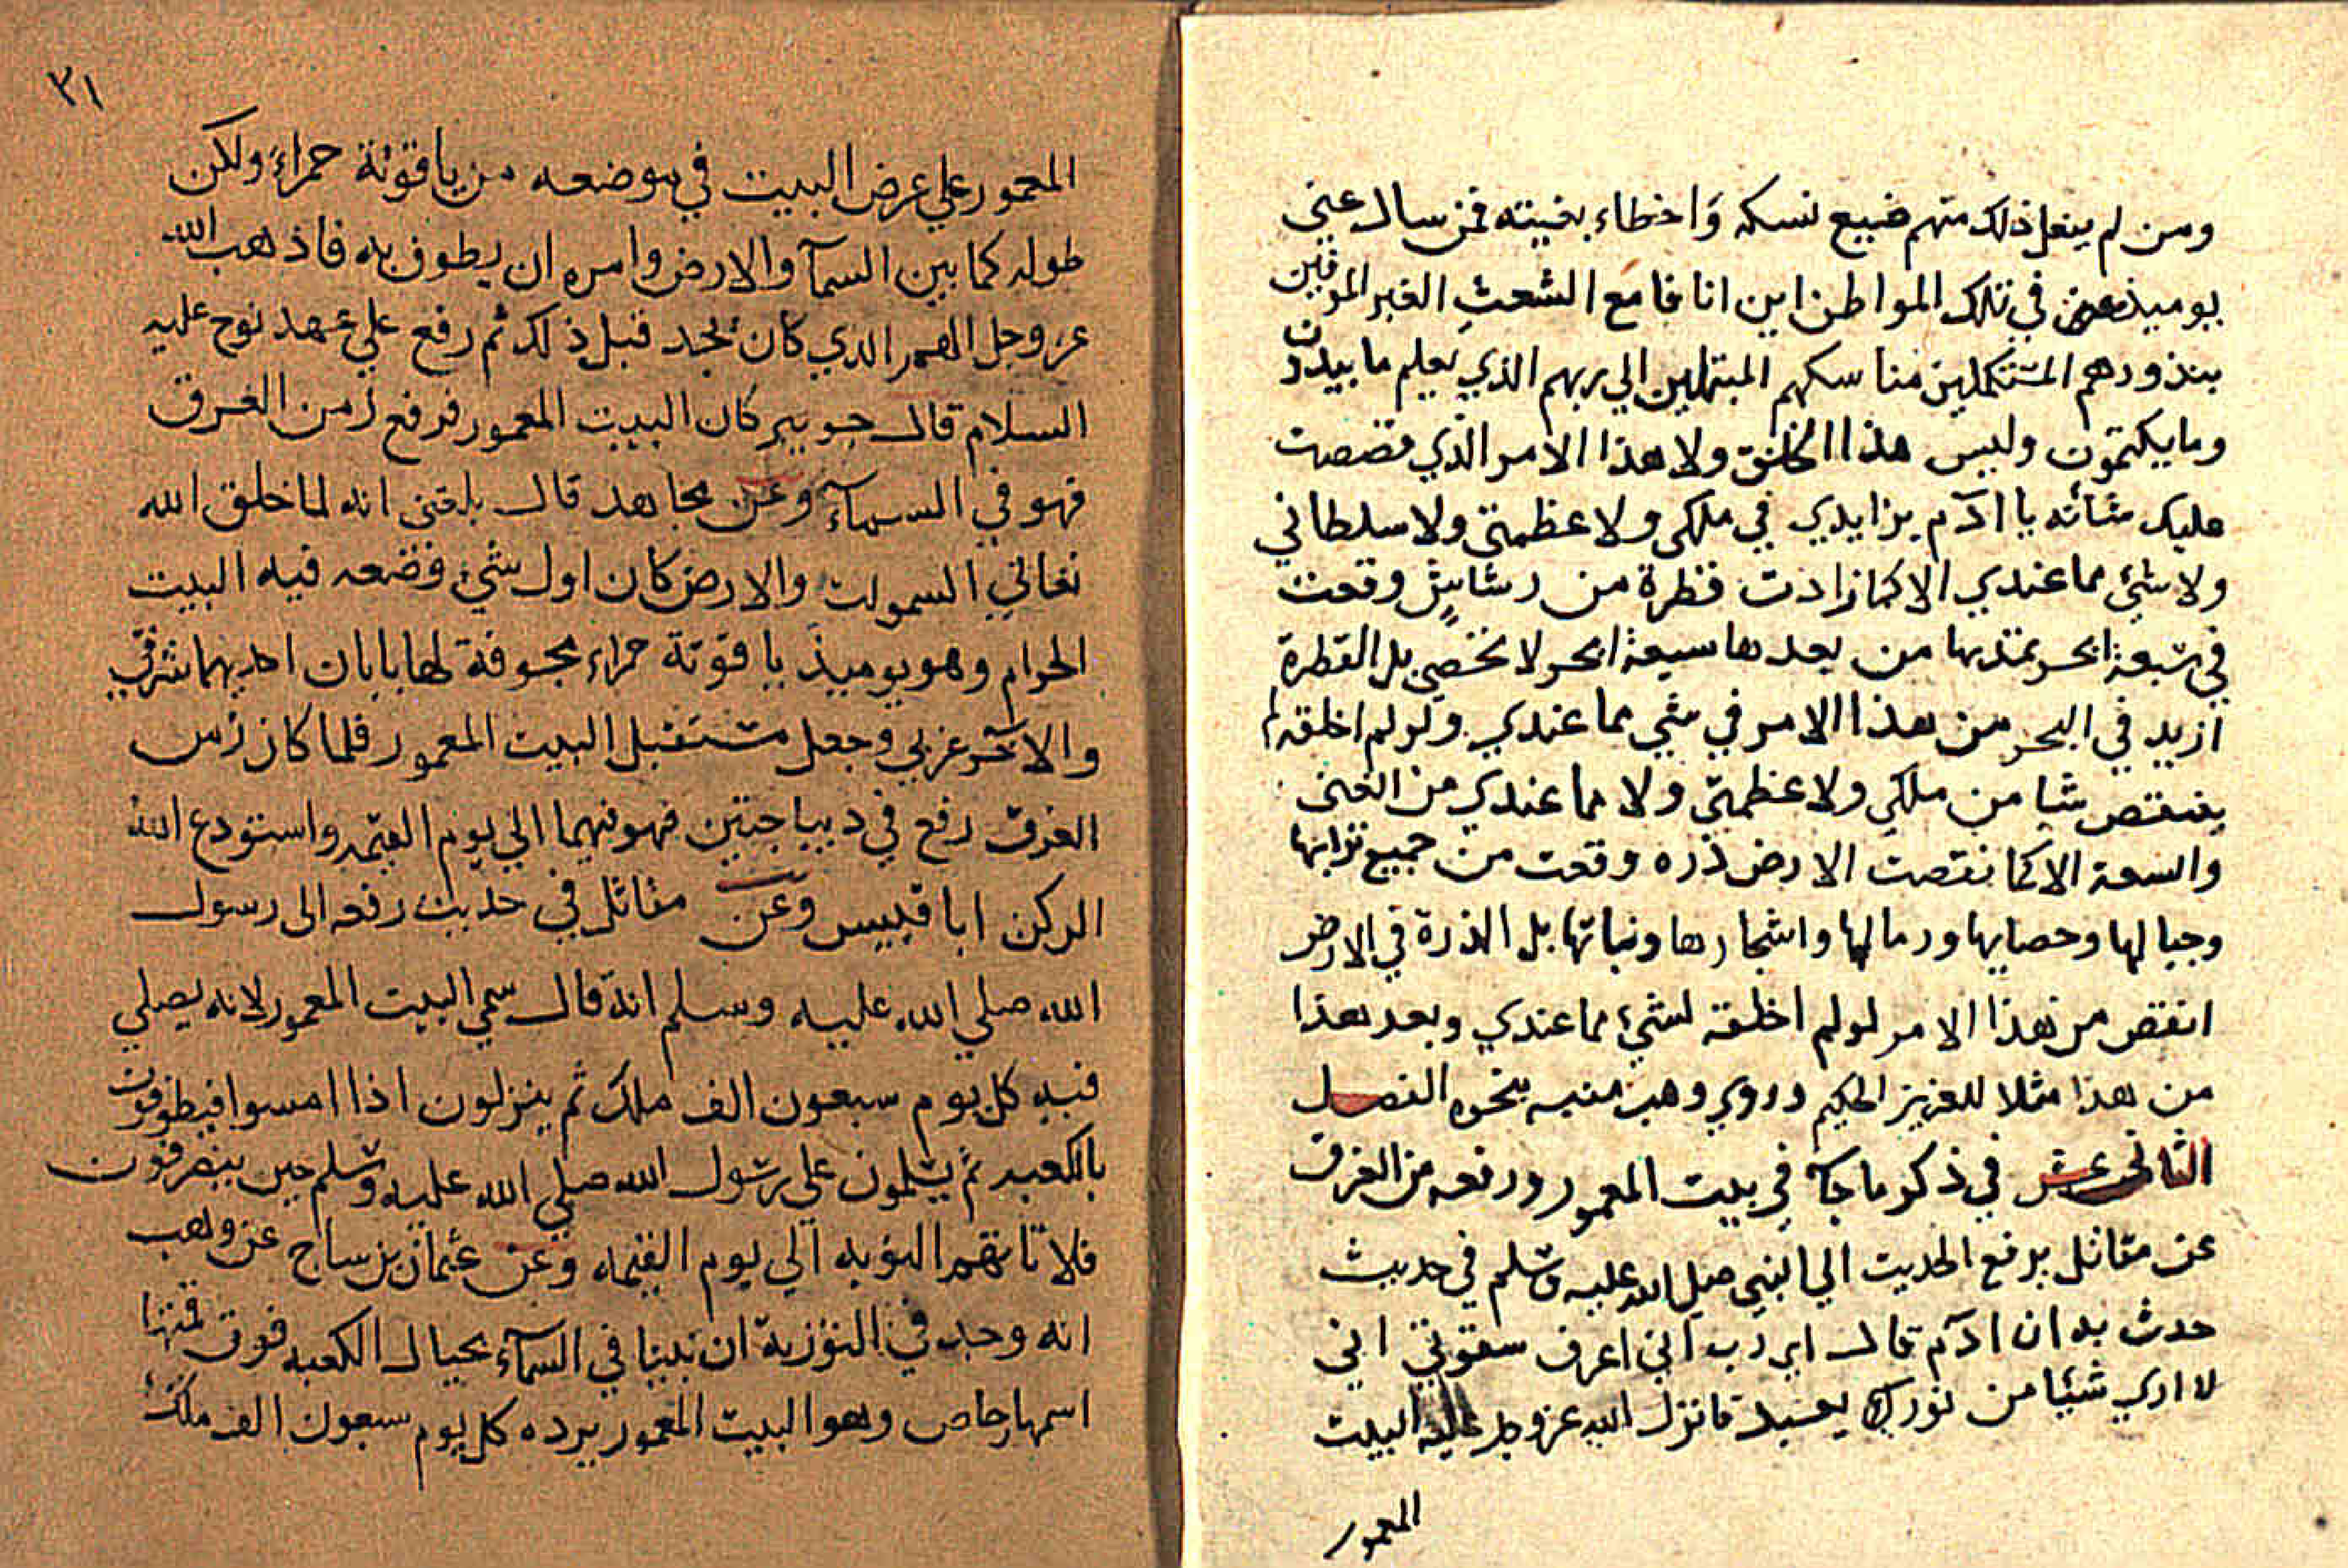 ومن لم يفعل ذلك منهم ضيع نسكه وَاخطاء بغيته فمن سال عني
يوميذ في تلك المواطن اين انا فا مَع الشعثِ الغبر الموفين
بنذورهم المستكملين مناسكهم المبتهلين الي ربهم الذي يعلم ما يبدون
وما يكتمون وليس هذا الخلق ولا هذا الامر الذي قصصت
عليك شأنه يا ادم بزايدي في ملكي ولا عظمتي ولا سلطاني
ولا شئ مما عندي الا كما زادت قطرة من رشاش وقعت
في سبعة ابحر تمدها من بعدها سبعة ابحر لا تحصى بل القطرة
ازيد في البحر من هذا الامر في شي مما عندي ولو لم اخلقه لم
ينتقص شيا من ملكي ولا عظمتي ولا مما عندي من الغنى
والسعة الا كما نقصت الارض ذره وقعت من جميع ترابها
وجبالها وحصايها ورمالها واشجارها ونباتها بل الذرة في الارض
انقص من هذا الامر لو لم اخلقه لشئ مما عندي وبعد هذا
من هذا مثلا للعزيز الحكيم وروي وهب منبه بنحوه الفصل
الثاني عشر في ذكر ما جآ في بيت المعمور ورفعه من الغرق
عن مقاتل يرفع الحديت الي النبي صلي الله عليه وسلم في حديث
حدث به ان ادم قال اي رب اني اعرف سقوتي اني
لا اري شيئا من نورك يعبد فانزل الله عز وجل عليه البيت
المعمور
٣١
المعمور علي عرض البيت في موضعه من ياقوتة حمراءَ ولكن
طوله كما بين السمآ والارض وامره ان يطوف به فاذهب الله
عز وجل الغم الذي كان يجد قبل ذلك ثم رفع علي عهد نوح عليه
السلام قال جويبر كان البيت المعمور فرفع زمن الغرق
فهو في السمآء وعن مجاهد قال بلغني انه لما خلق الله
تعالي السموات والارض كان اول شيء وضعه فيه البيت
الحرام وهو يوميذ ياقوتة حمراء مجوفة لها بابان احديهما شرقي
والاخر غربي وجعل مستقبل البيت المعمور فلما كان زمن
الغرق رفع في ديباجتين فهو فيهما الي يوم القيمه واستودع الله
الركن ابا قبيس وعن مقاتل في حديث رفعه الى رسول
الله صلي الله عليه وسلم انه قال سمي البيت المعمور لانه يصلي
فيه كل يوم سبعون الف ملك ثم ينزلون اذا امسوا فيطوفون
بالكعبه ثم يسلمون على رسول الله صلي الله عليه وسلم حين ينصرفون
فلا تانهم النوبه الي يوم القيمه وعن عثمان بن ساج عن وهب
انه وجد في التورية ان بيتا في السمآء بحيال الكعبه فوق قمتها
اسمها رحاص وهو البيت المعمور يرده كل يوم سبعون الف ملك